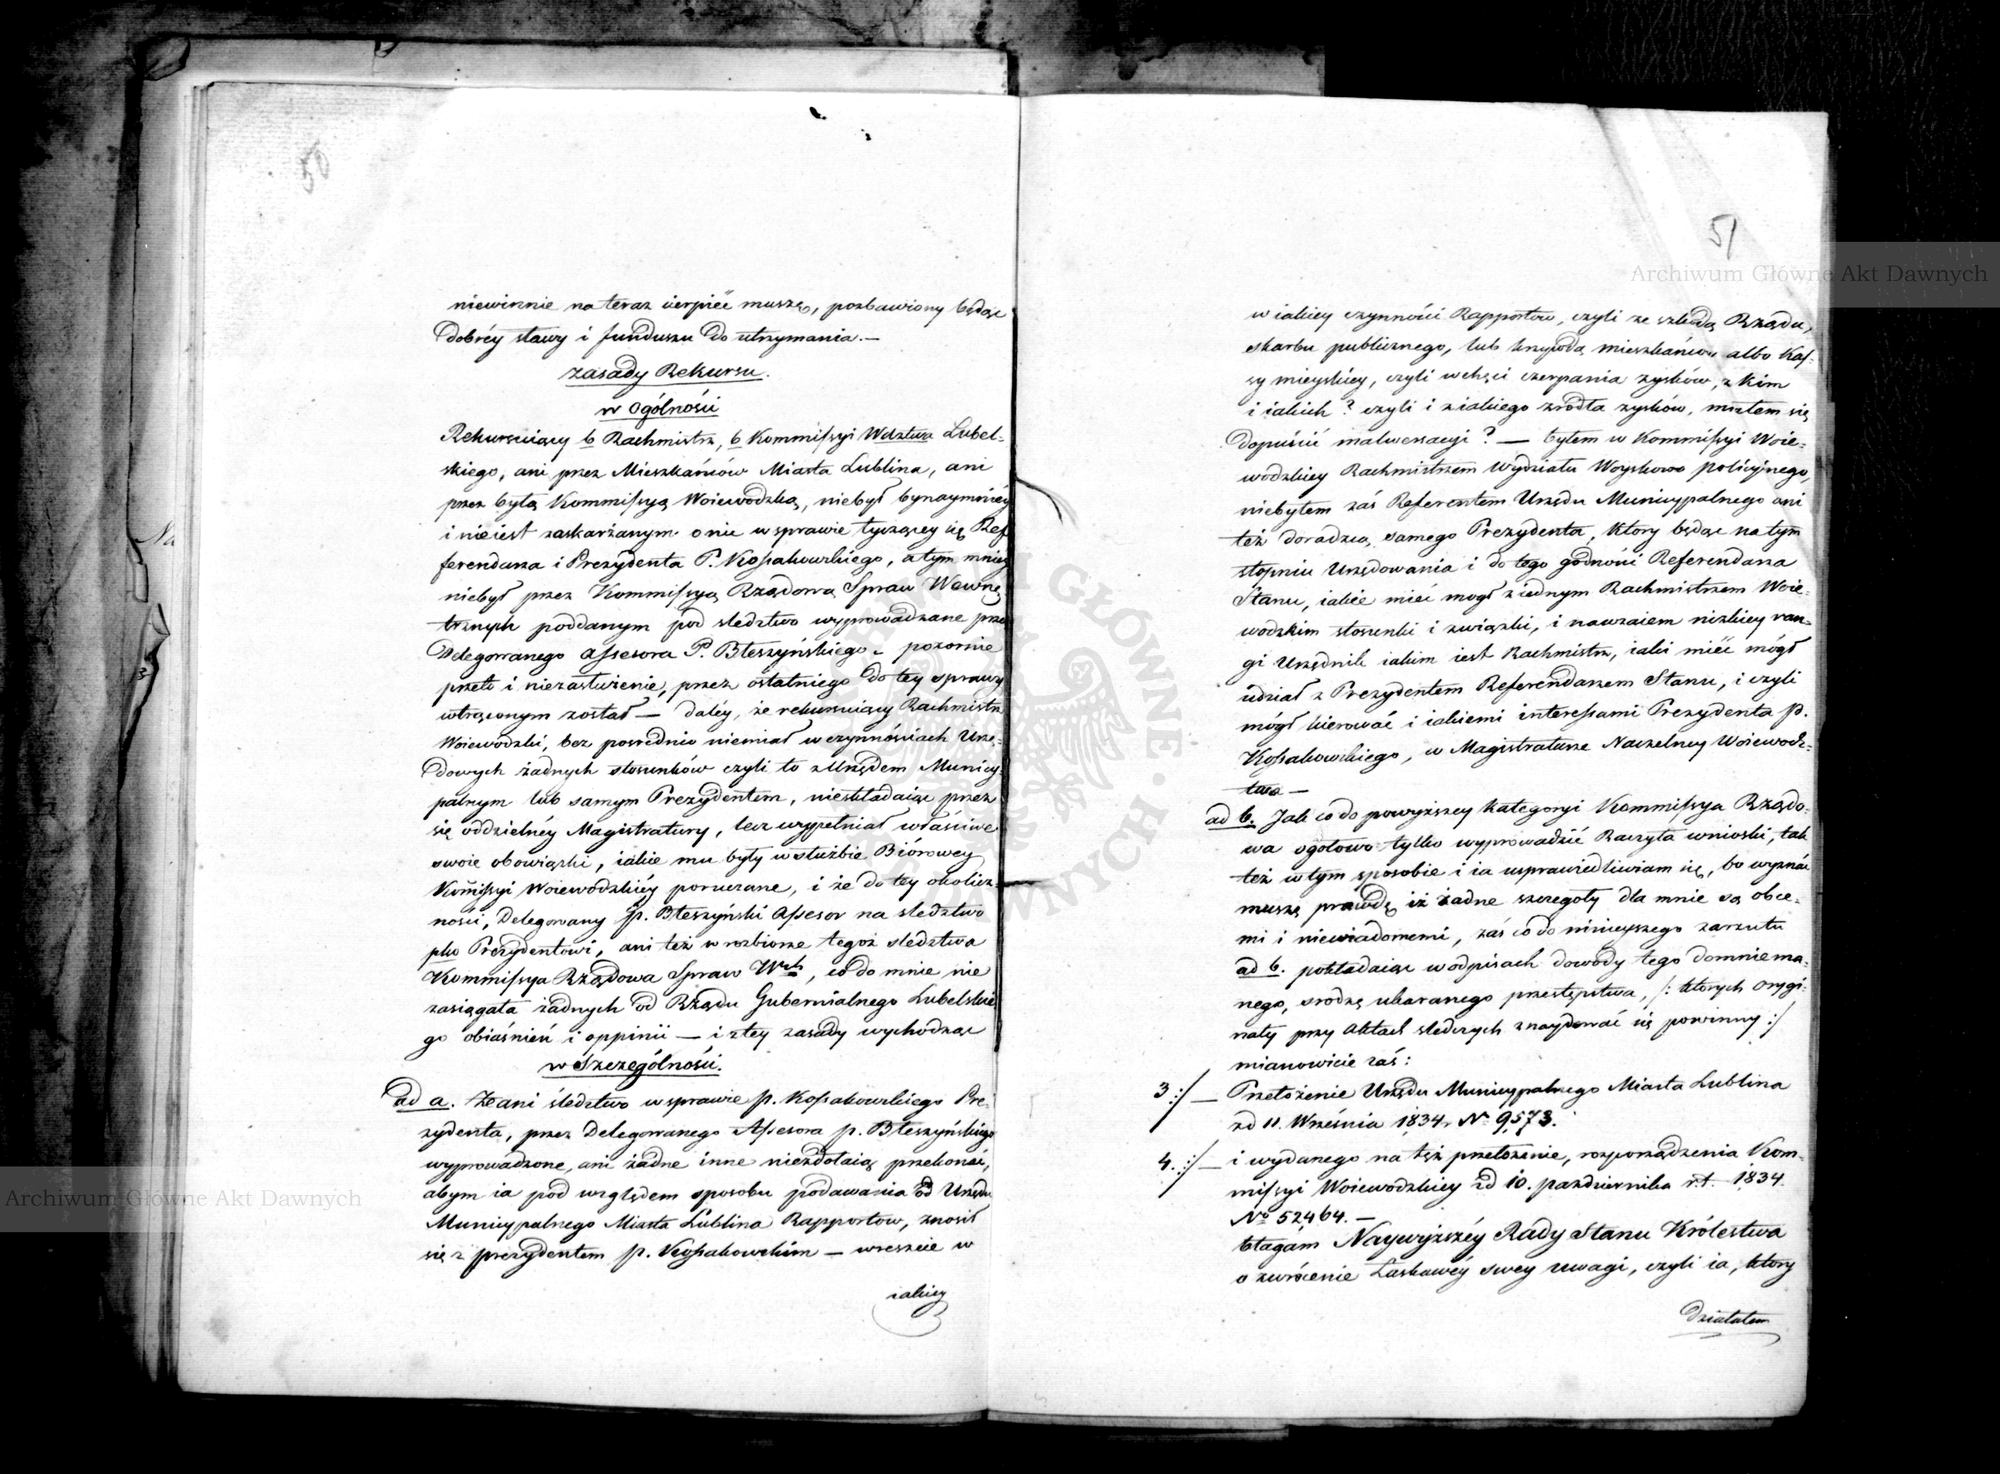 50
niewinnie na teraz cierpieć muszę, pozbawiony będąc
dobréy sławy i funduszu do utrzymania.—
Zasady Rekursu.
w Ogólności
Rekursuiący b Rachmistrz, b Kommissyi Wdztwa Lubel-
skiego, ani przez Mieszkańców Miasta Lublina, ani
przez byłą Kommissyą Woiewodzką, niebył bynaymniéy
i nieiest zaskarżanym o nic w sprawie tyczącey się Ref
ferendarza i Prezydenta P. Kossakowskiego, a tym mniey
niebył przez Kommissyą Rządową Spraw Wewnę
trznych poddanym pod śledztwo wyprowadzane przez
Delegowanego Assesora P. Błeszyńskiego pozornie
przeto i niezasłużenie, przez ostatniego do tey sprawy
wtrąconym został — daléy, że rekursuiący Rachmistrz
Woiewodzki, bez pośrednio niemiał w czynnościach Urzę-
dowych żadnych stosunków czyli to z Urzędem Municy-
palnym lub samym Prezydentem, nieskładaiąc przez
się oddzielnéy Magistratury, lecz wypełniał właściwe
swoie obowiązki, iakie mu były w służbie Biórowey
Komissyi Woiewodzkiéy poruczane, i że do tey okolicz-
ności, Delegowany p. Błeszyński Assesor na śledztwo
pko Prezydentowi, ani też w rozbiorze tegoż śledztwa
Kommissya Rządowa Spraw Wych, co do mnie nie
zasiągała żadnych od Rządu Gubernialnego Lubelskie
go obiaśnień i oppinii — i z tey zasady wychodząc
w Szczególności.
ad a. Że ani śledztwo w sprawie p. Kossakowskiego Pre-
zydenta, przez Delegowanego Assesora p. Błeszyńskiego
wyprowadzone, ani żadne inne niezdołaią przekonać,
abym ia pod względem sposobu podawania od Urzędu
Municypalnego Miasta Lublina Rapportow, znosił
się z prezydentem p. Kossakowskim — wreszcie w
iakiey
51
w iakiey czynności Rapportow, czyli ze szkodą Rządu,
skarbu publicznego, lub krzywdą mieszkańców albo Kas-
sy mieyskiey, czyli w chęci czerpania zysków, z kim
i iakich? czyli i z iakiego źródła zysków, miałem się
dopuścić malwersacyi? — byłem w Kommissyi Woie-
wodzkiey Rachmistrzem Wydziału Woyskowo policyjnego,
niebyłem zaś Referentem Urzędu Municypalnego ani
też doradzcą samego Prezydenta, który będąc na tym
stopniu Urzędowania i do tego godności Referendarza
Stanu, iakie mieć mogł z iednym Rachmistrzem Woie-
wodzkim stosunki i związki, i nawzaiem nizkiey ran-
gi Urzędnik iakim iest Rachmistrz, iaki mieć mógł
udział z Prezydentem Referendarzem Stanu, i czyli
mógł kierować i iakiemi interessami Prezydenta p.
Kossakowskiego, w Magistraturze Naczelney Woiewodz-
twa —
ad b. Jak co do powyższey kategoryi Kommissya Rządo-
wa ogołowo tylko wyprowadzić Raczyła wnioski, tak
też w tym sposobie i ia usprawiedliwiam się, bo wyznać
muszę prawdę iż żadne szczegoły dla mnie są obce-
mi i niewiadomemi, zaś co do ninieyszego zarzutu
ad b. pokładaiąc w odpisach dowody tego domniema-
nego, srodze ukaranego przestępstwa, /: których orygi-
nały przy Aktach śledczych znaydować się powinny :/
mianowicie zaś:
3 :/ — Przełożenie Urzędu Municypalnego Miasta Lublina
zd 11. Września 1834. N. 9,573.
4. :/ — i wydanego na też przełożenie, rozporządzenia Kom-
missyi Woiewodzkiey zd 10. pazdziernika r. t. 1834.
No 52,464. —
błagám Naywyższéy Rady Stanu Królestwa
o zwrócenie Łaskawéy swey uwagi, czyli ia, który
działałem
Archiwum Główne Akt Dawnych
Archiwum Główne Akt Dawnych